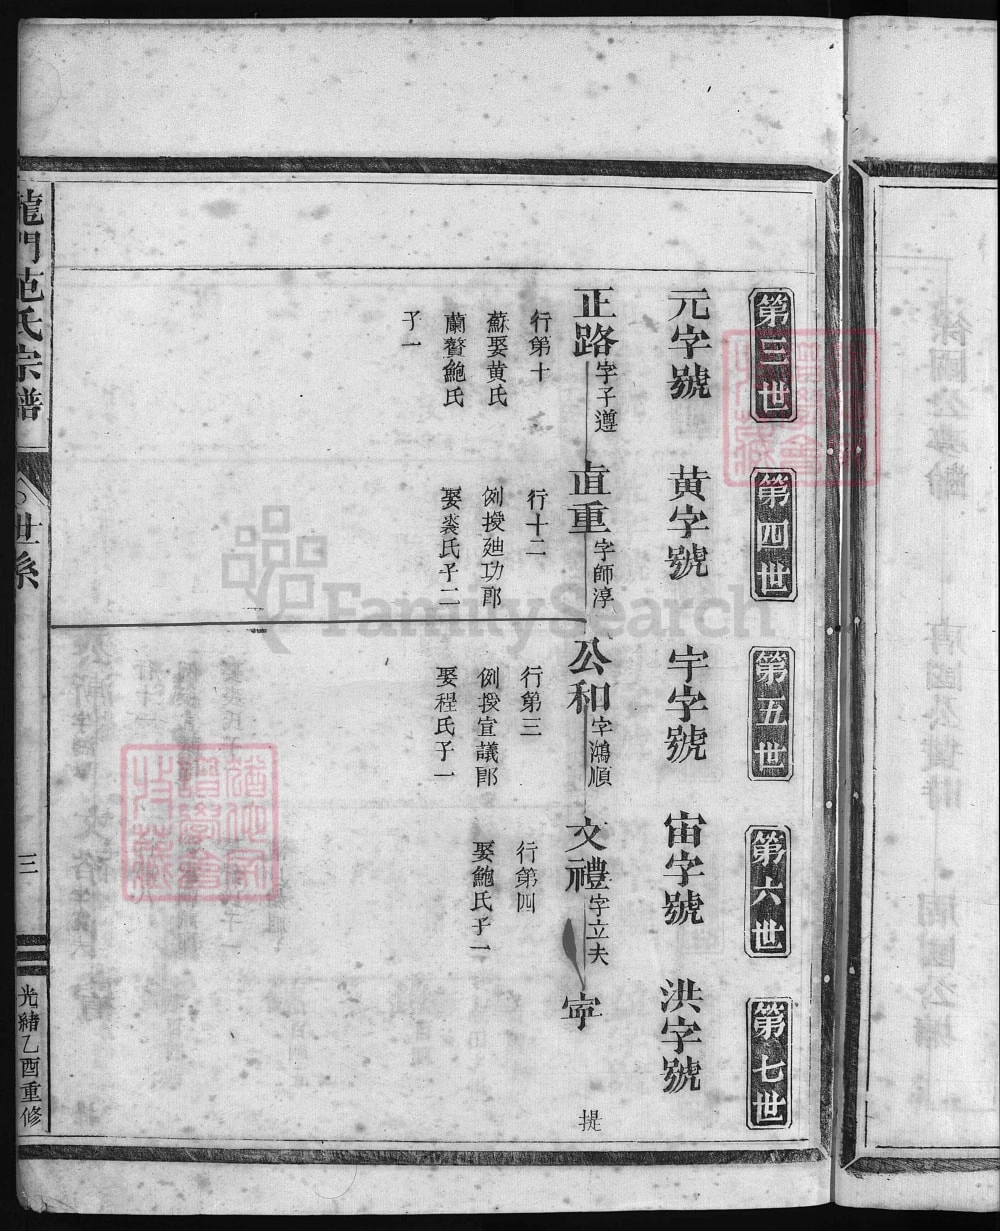 第三世
第四世
第五世
第六世
第七世
元字號
黄字號
宇字號
宙字號
洪字號
正路 字子遵
直重 字師淳
公和 字鴻順
文禮 字立夫
寜
提
行第十
蘇娶黄氏
蘭贅鮑氏
子一
行十二
例授廸功郎
娶裘氏子二
行第三
例授宣議郎
娶程氏子一
行第四
娶鮑氏子一
龍門范氏宗譜
世系
三
光緒乙酉重修
FamilySearch